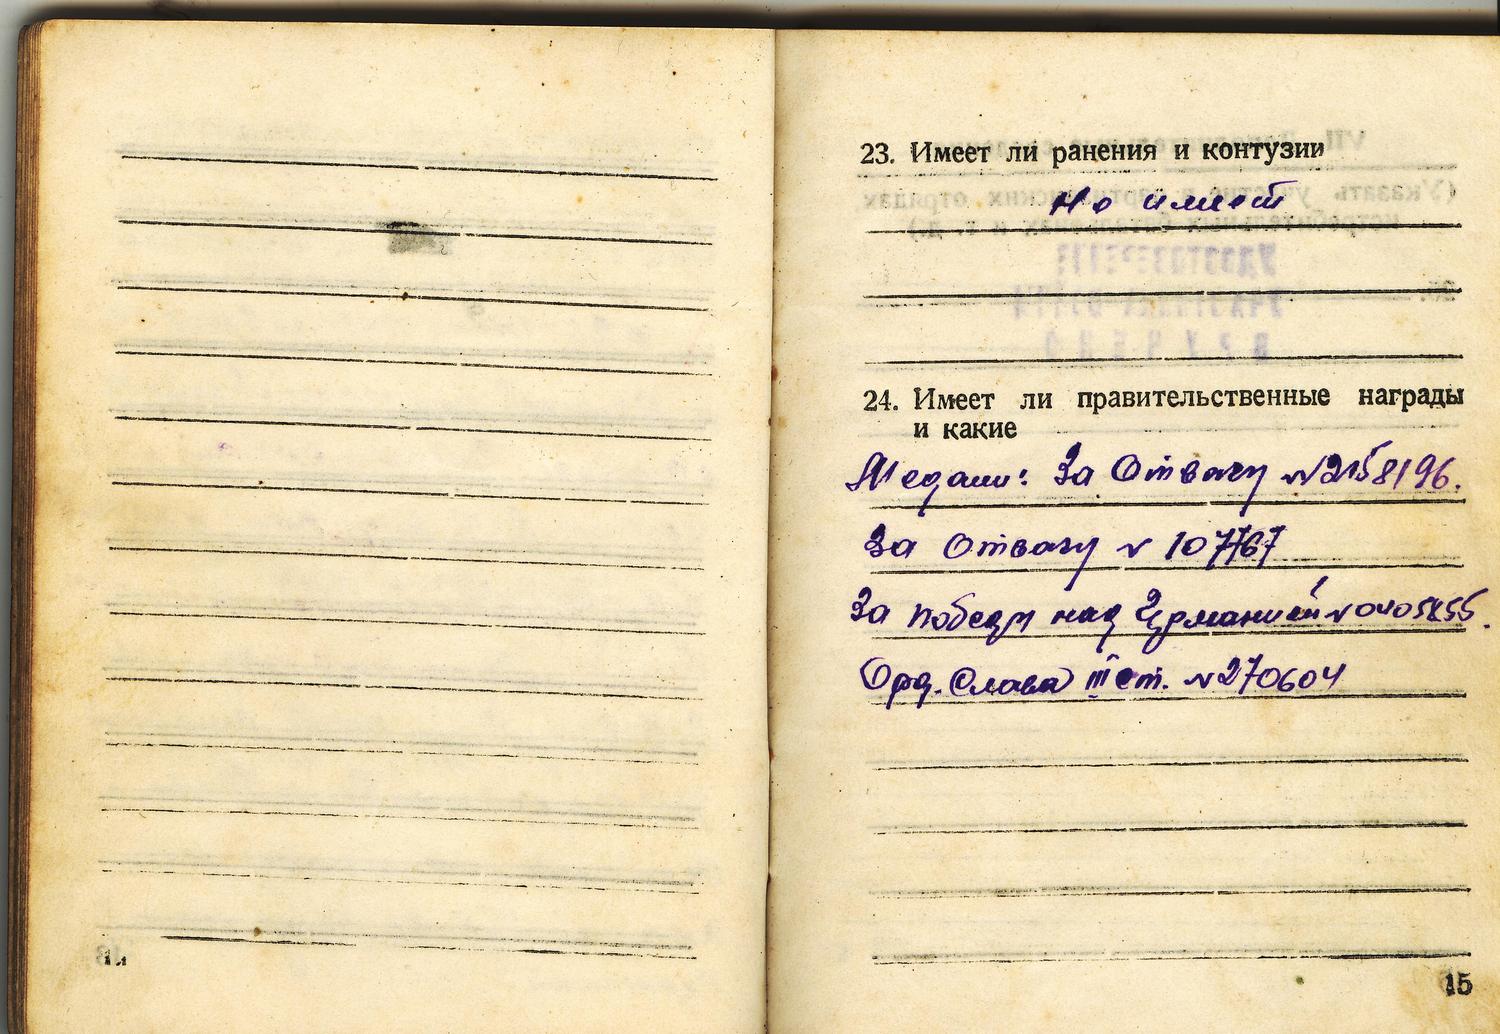 23. Имеет ли ранения и контузии
Не имеет
24. Имеет ли правительственные награды
и какие
Медали: За Отвагу N 2158196.
За Отвагу N 107767
За победу над Германией N 0405855.
Орд. Слава III ст. N 270604
15